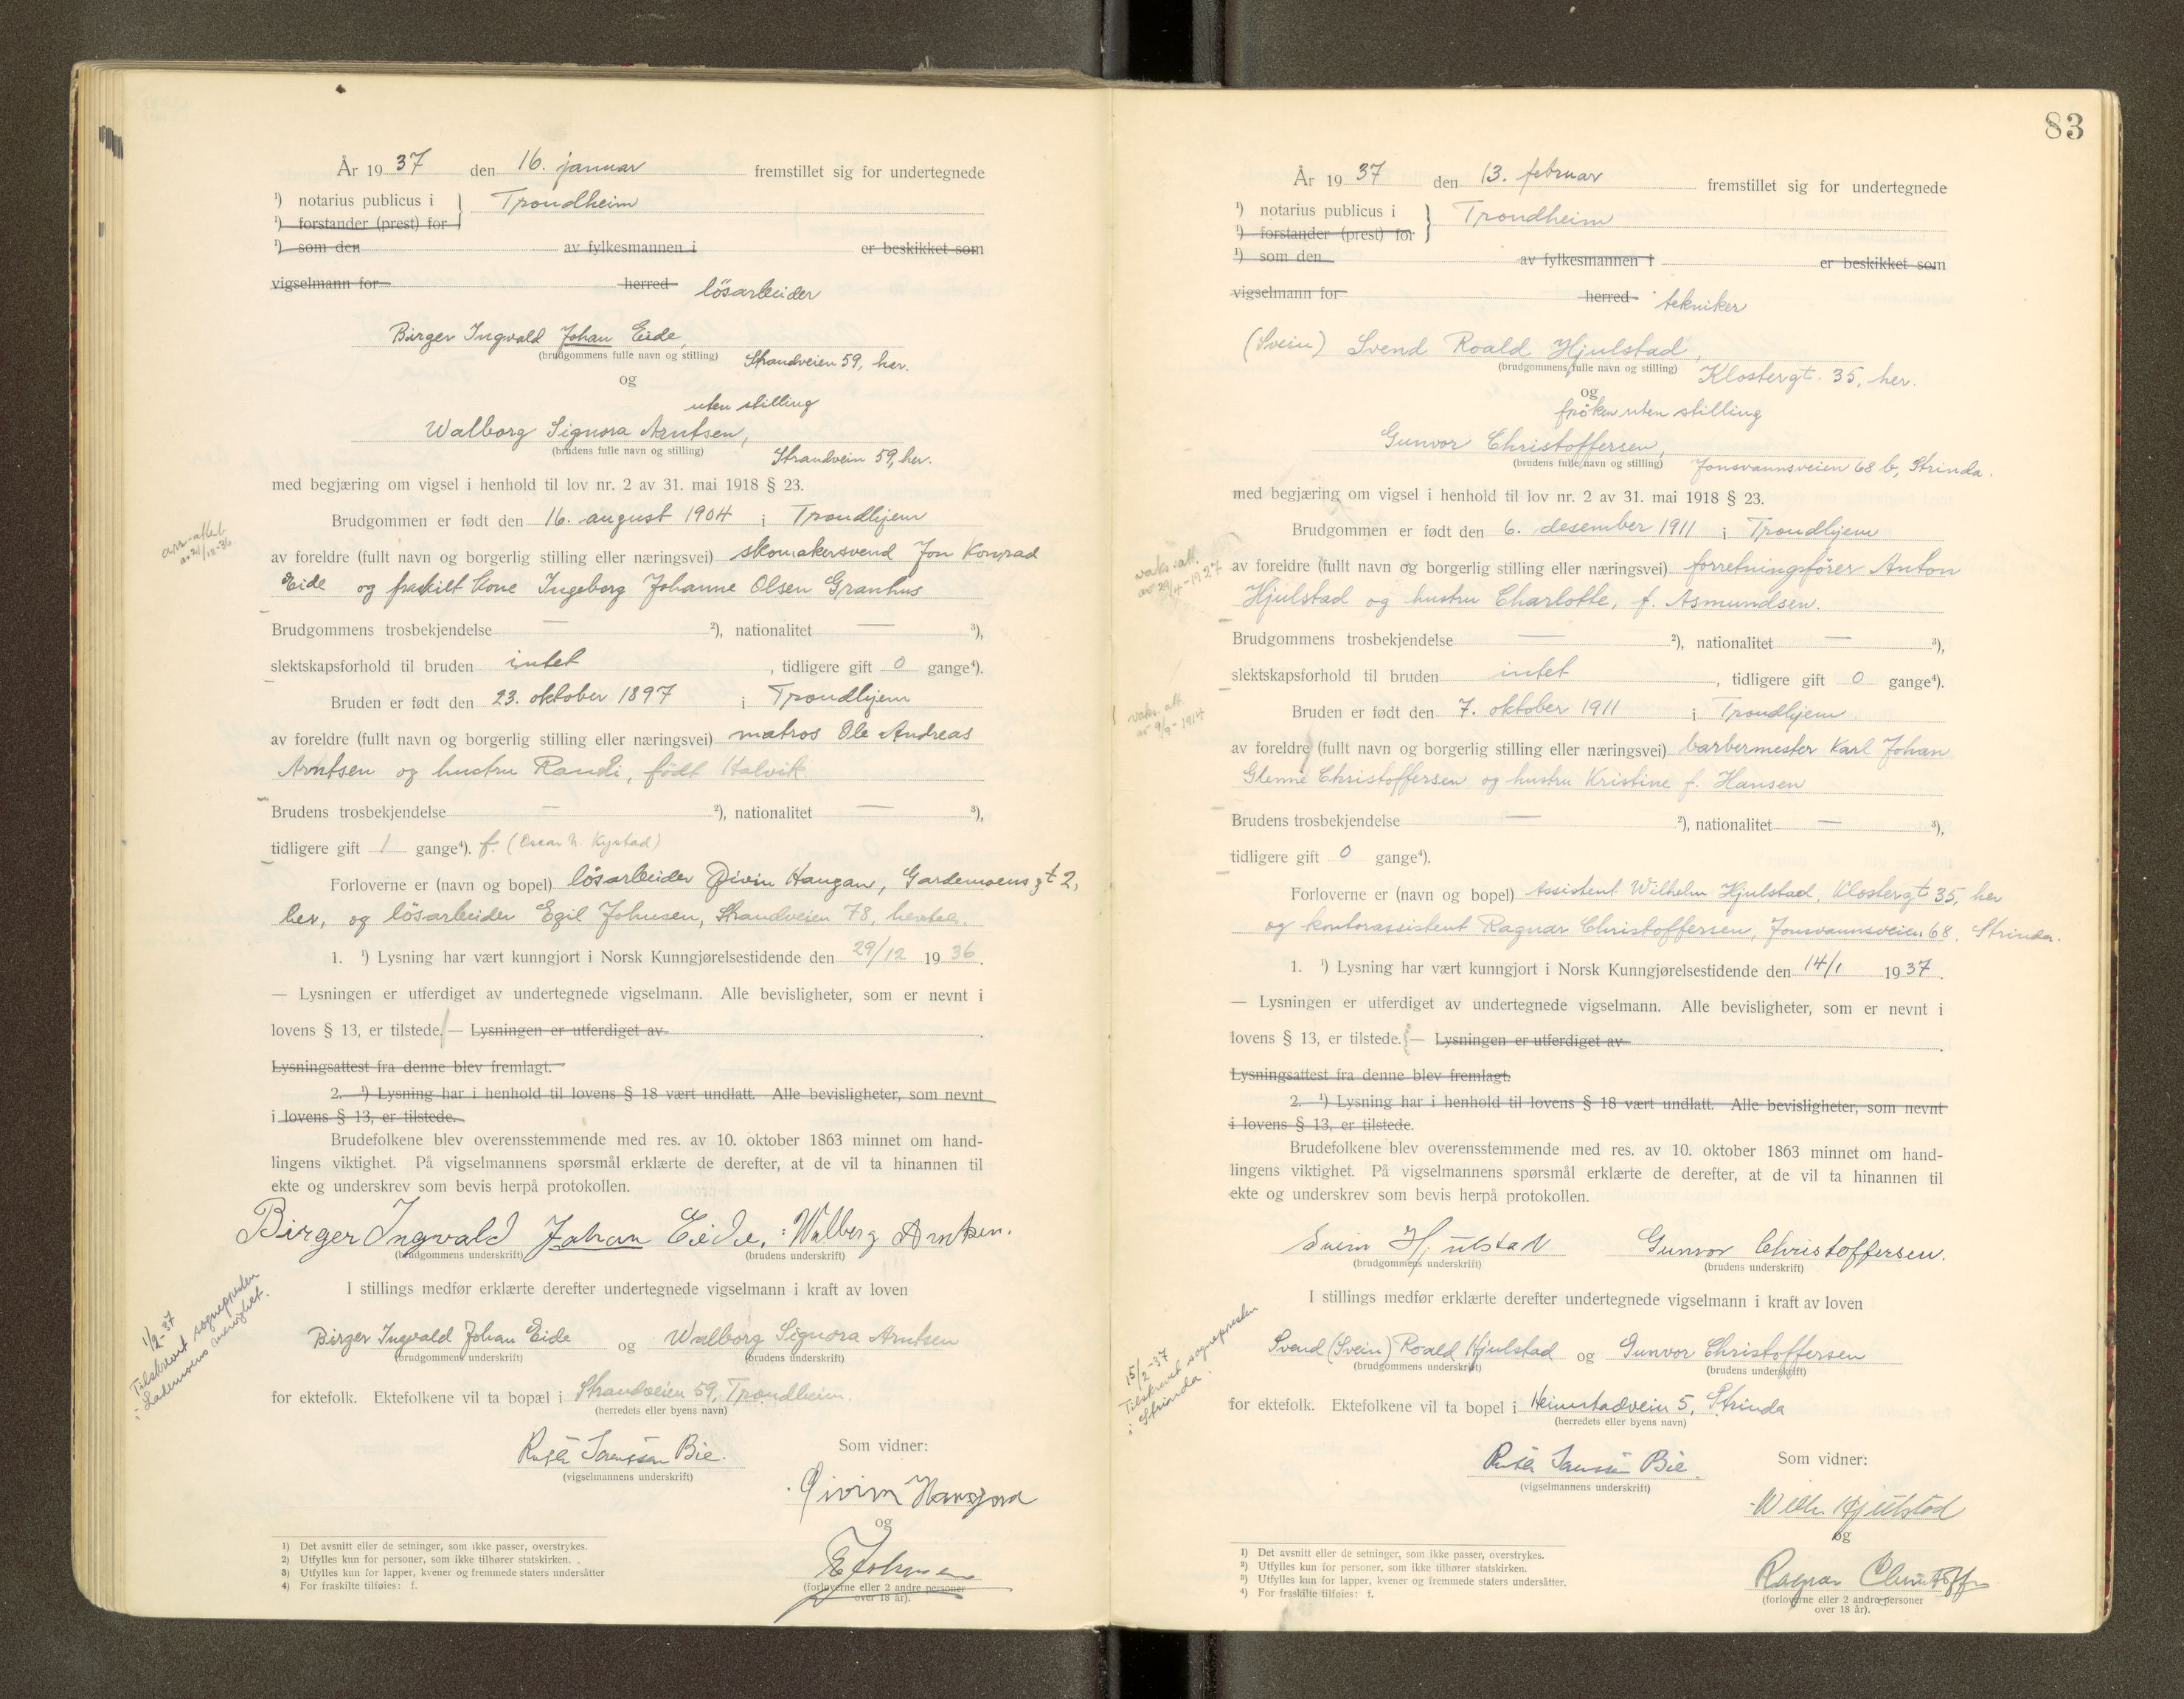 År 1937 den 16. januar fremstillet sig for undertegnede
¹) notarius publicus i } Trondheim
¹) forstander (prest) for
¹) som den av fylkesmannen i er beskikket som
vigselmann for herred lösarbeider
Birger Ingvald Johan Eide,
(brudgommens fulle navn og stilling) Strandveien 59, her.
og
uten stilling
Walborg Signora Arntsen,
(brudens fulle navn og stilling) Strandvein 59, her.
med begjæring om vigsel i henhold til lov nr. 2 av 31. mai 1918 § 23.
Brudgommen er født den 16. august 1904 i Trondhjem
av foreldre (fullt navn og borgerlig stilling eller næringsvei) skomakersvend Jon Konrad
Eide og fraskilt kone Ingeborg Johanne Olsen Granhus
Brudgommens trosbekjendelse — ²), nationalitet — ³),
slektskapsforhold til bruden intet, tidligere gift 0 gange⁴).
Bruden er født den 23. oktober 1897 i Trondhjem
av foreldre (fullt navn og borgerlig stilling eller næringsvei) matros Ole Andreas
Arntsen og hustru Randi, født Halvik
Brudens trosbekjendelse — ²), nationalitet — ³),
tidligere gift 1 gange⁴). f. (Oscar N. Kystad)
Forloverne er (navn og bopel) lösarbeider Øivin Haugan, Gardemoens gt 2,
her, og lösarbeider Egil Johnsen, Strandveien 78, hersteds.
1. ¹) Lysning har vært kunngjort i Norsk Kunngjørelsestidende den 29/12 1936.
— Lysningen er utferdiget av undertegnede vigselmann. Alle bevisligheter, som er nevnt i
lovens § 13, er tilstede. — Lysningen er utferdiget av
Lysningsattest fra denne blev fremlagt.
2. ¹) Lysning har i henhold til lovens § 18 vært undlatt. Alle bevisligheter, som nevnt
i lovens § 13, er tilstede.
Brudefolkene blev overensstemmende med res. av 10. oktober 1863 minnet om hand-
lingens viktighet. På vigselmannens spørsmål erklærte de derefter, at de vil ta hinannen til
ekte og underskrev som bevis herpå protokollen.
Birger Ingvald Johan Eide, Walborg Arntsen.
(brudgommens underskrift) (brudens underskrift)
I stillings medfør erklærte derefter undertegnede vigselmann i kraft av loven
Birger Ingvald Johan Eide og Walborg Signora Arntsen
(brudgommens underskrift) (brudens underskrift)
1/2-37
Tilskrevet sognepresten
i Lademoens menighet.
for ektefolk. Ektefolkene vil ta bopæl i Strandveien 59, Trondheim.
(herredets eller byens navn)
Bie.
(vigselmannens underskrift)
Som vidner:
Øivin
og
E Johnsen
(forloverne eller 2 andre personer
over 18 år).
1) Det avsnitt eller de setninger, som ikke passer, overstrykes.
2) Utfylles kun for personer, som ikke tilhører statskirken.
3) Utfylles kun for lapper, kvener og fremmede staters undersåtter
4) For fraskilte tilføies: f.
83
År 1937 den 13. februar fremstillet sig for undertegnede
¹) notarius publicus i } Trondheim
¹) forstander (prest) for
¹) som den av fylkesmannen i er beskikket som
vigselmann for herred tekniker
(Svein) Svend Roald Hjulstad,
(brudgommens fulle navn og stilling) Klostergt. 35, her.
og
frøken uten stilling
Gunvor Christoffersen,
(brudens fulle navn og stilling) Jonsvannsveien 68 b, Strinda.
med begjæring om vigsel i henhold til lov nr. 2 av 31. mai 1918 § 23.
Brudgommen er født den 6. desember 1911 i Trondhjem
vaks. att.
av 29/4-1927
av foreldre (fullt navn og borgerlig stilling eller næringsvei) forretningsfører Anton
Hjulstad og hustru Charlotte, f. Asmundsen.
Brudgommens trosbekjendelse — ²), nationalitet — ³),
slektskapsforhold til bruden intet, tidligere gift 0 gange⁴).
Bruden er født den 7. oktober 1911 i Trondhjem
vaks. att.
av 9/9-1914
av foreldre (fullt navn og borgerlig stilling eller næringsvei) barbermester Karl Johan
Glenne Christoffersen og hustru Kristine f. Hansen
Brudens trosbekjendelse — ²), nationalitet — ³),
tidligere gift 0 gange⁴).
Forloverne er (navn og bopel) Assistent Wilhelm Hjulstad, Klostergt 35, her
og kontorassistent Ragnar Christoffersen, Jonsvannsveien 68, Strinda.
1. ¹) Lysning har vært kunngjort i Norsk Kunngjørelsestidende den 14/1 1937.
— Lysningen er utferdiget av undertegnede vigselmann. Alle bevisligheter, som er nevnt i
lovens § 13, er tilstede. — Lysningen er utferdiget av
Lysningsattest fra denne blev fremlagt.
2. ¹) Lysning har i henhold til lovens § 18 vært undlatt. Alle bevisligheter, som nevnt
i lovens § 13, er tilstede.
Brudefolkene blev overensstemmende med res. av 10. oktober 1863 minnet om hand-
lingens viktighet. På vigselmannens spørsmål erklærte de derefter, at de vil ta hinannen til
ekte og underskrev som bevis herpå protokollen.
Svein Hjulstad Gunvor Christoffersen.
(brudgommens underskrift) (brudens underskrift)
I stillings medfør erklærte derefter undertegnede vigselmann i kraft av loven
Svend (Svein) Roald Hjulstad og Gunvor Christoffersen
(brudgommens underskrift) (brudens underskrift)
15/2-37
Tilskrevet sognepresten
i Strinda.
for ektefolk. Ektefolkene vil ta bopel i Heimstadveien 5, Strinda
(herredets eller byens navn)
Bie.
(vigselmannens underskrift)
Som vidner:
Wilh. Hjulstad
og
Ragnar Christoff
(forloverne eller 2 andre personer
over 18 år).
¹) Det avsnitt eller de setninger, som ikke passer, overstrykes.
²) Utfylles kun for personer, som ikke tilhører statskirken.
³) Utfylles kun for lapper, kvener og fremmede staters undersåtter.
⁴) For fraskilte tilføies: f.